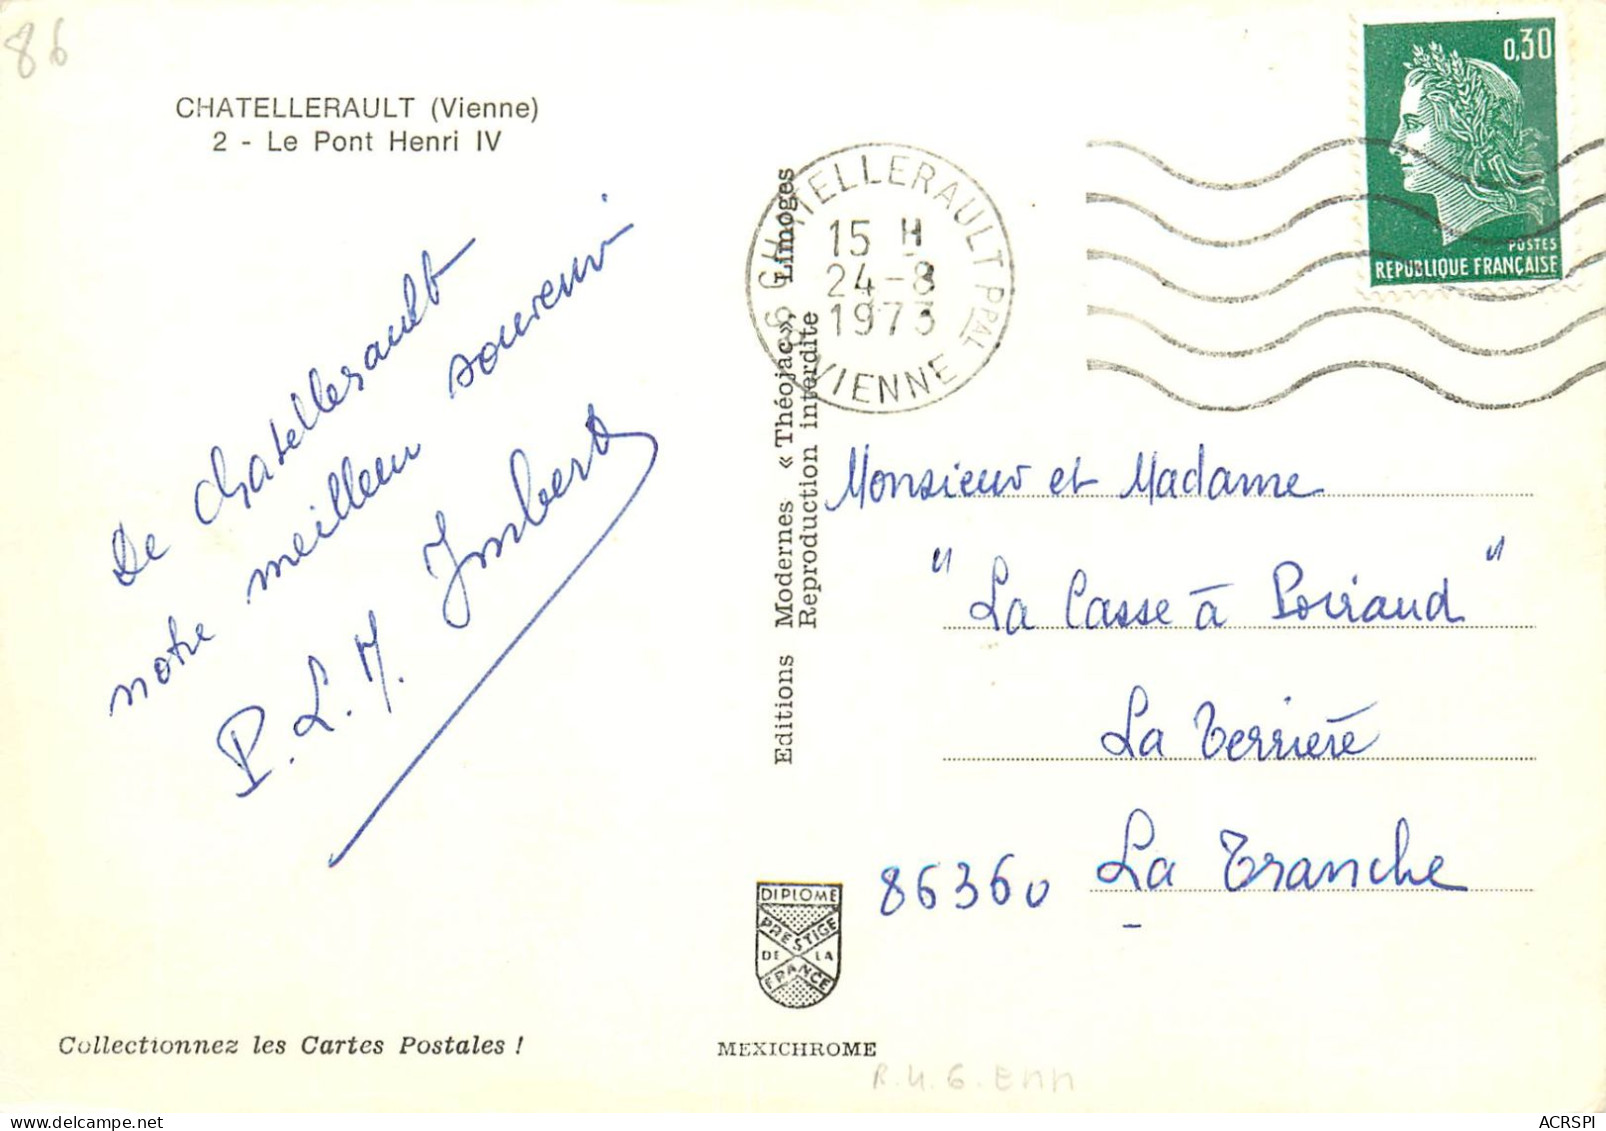 86
CHATELLERAULT (Vienne)
2 - Le Pont Henri IV
De Chatellerault
notre meilleur souvenir
P. L. M. Imbert
Editions Modernes « Théojac», Limoges
Reproduction interdite
86 CHATELLERAULT PPAL
15 H
24-8
1973
VIENNE
0,30
POSTES
REPUBLIQUE FRANÇAISE
Monsieur et Madame
" La Casse à Poiraud "
La Terrière
86360 La Tranche
DIPLOME
PRESTIGE
DE LA
FRANCE
Collectionnez les Cartes Postales !
MEXICHROME
ACRSPI